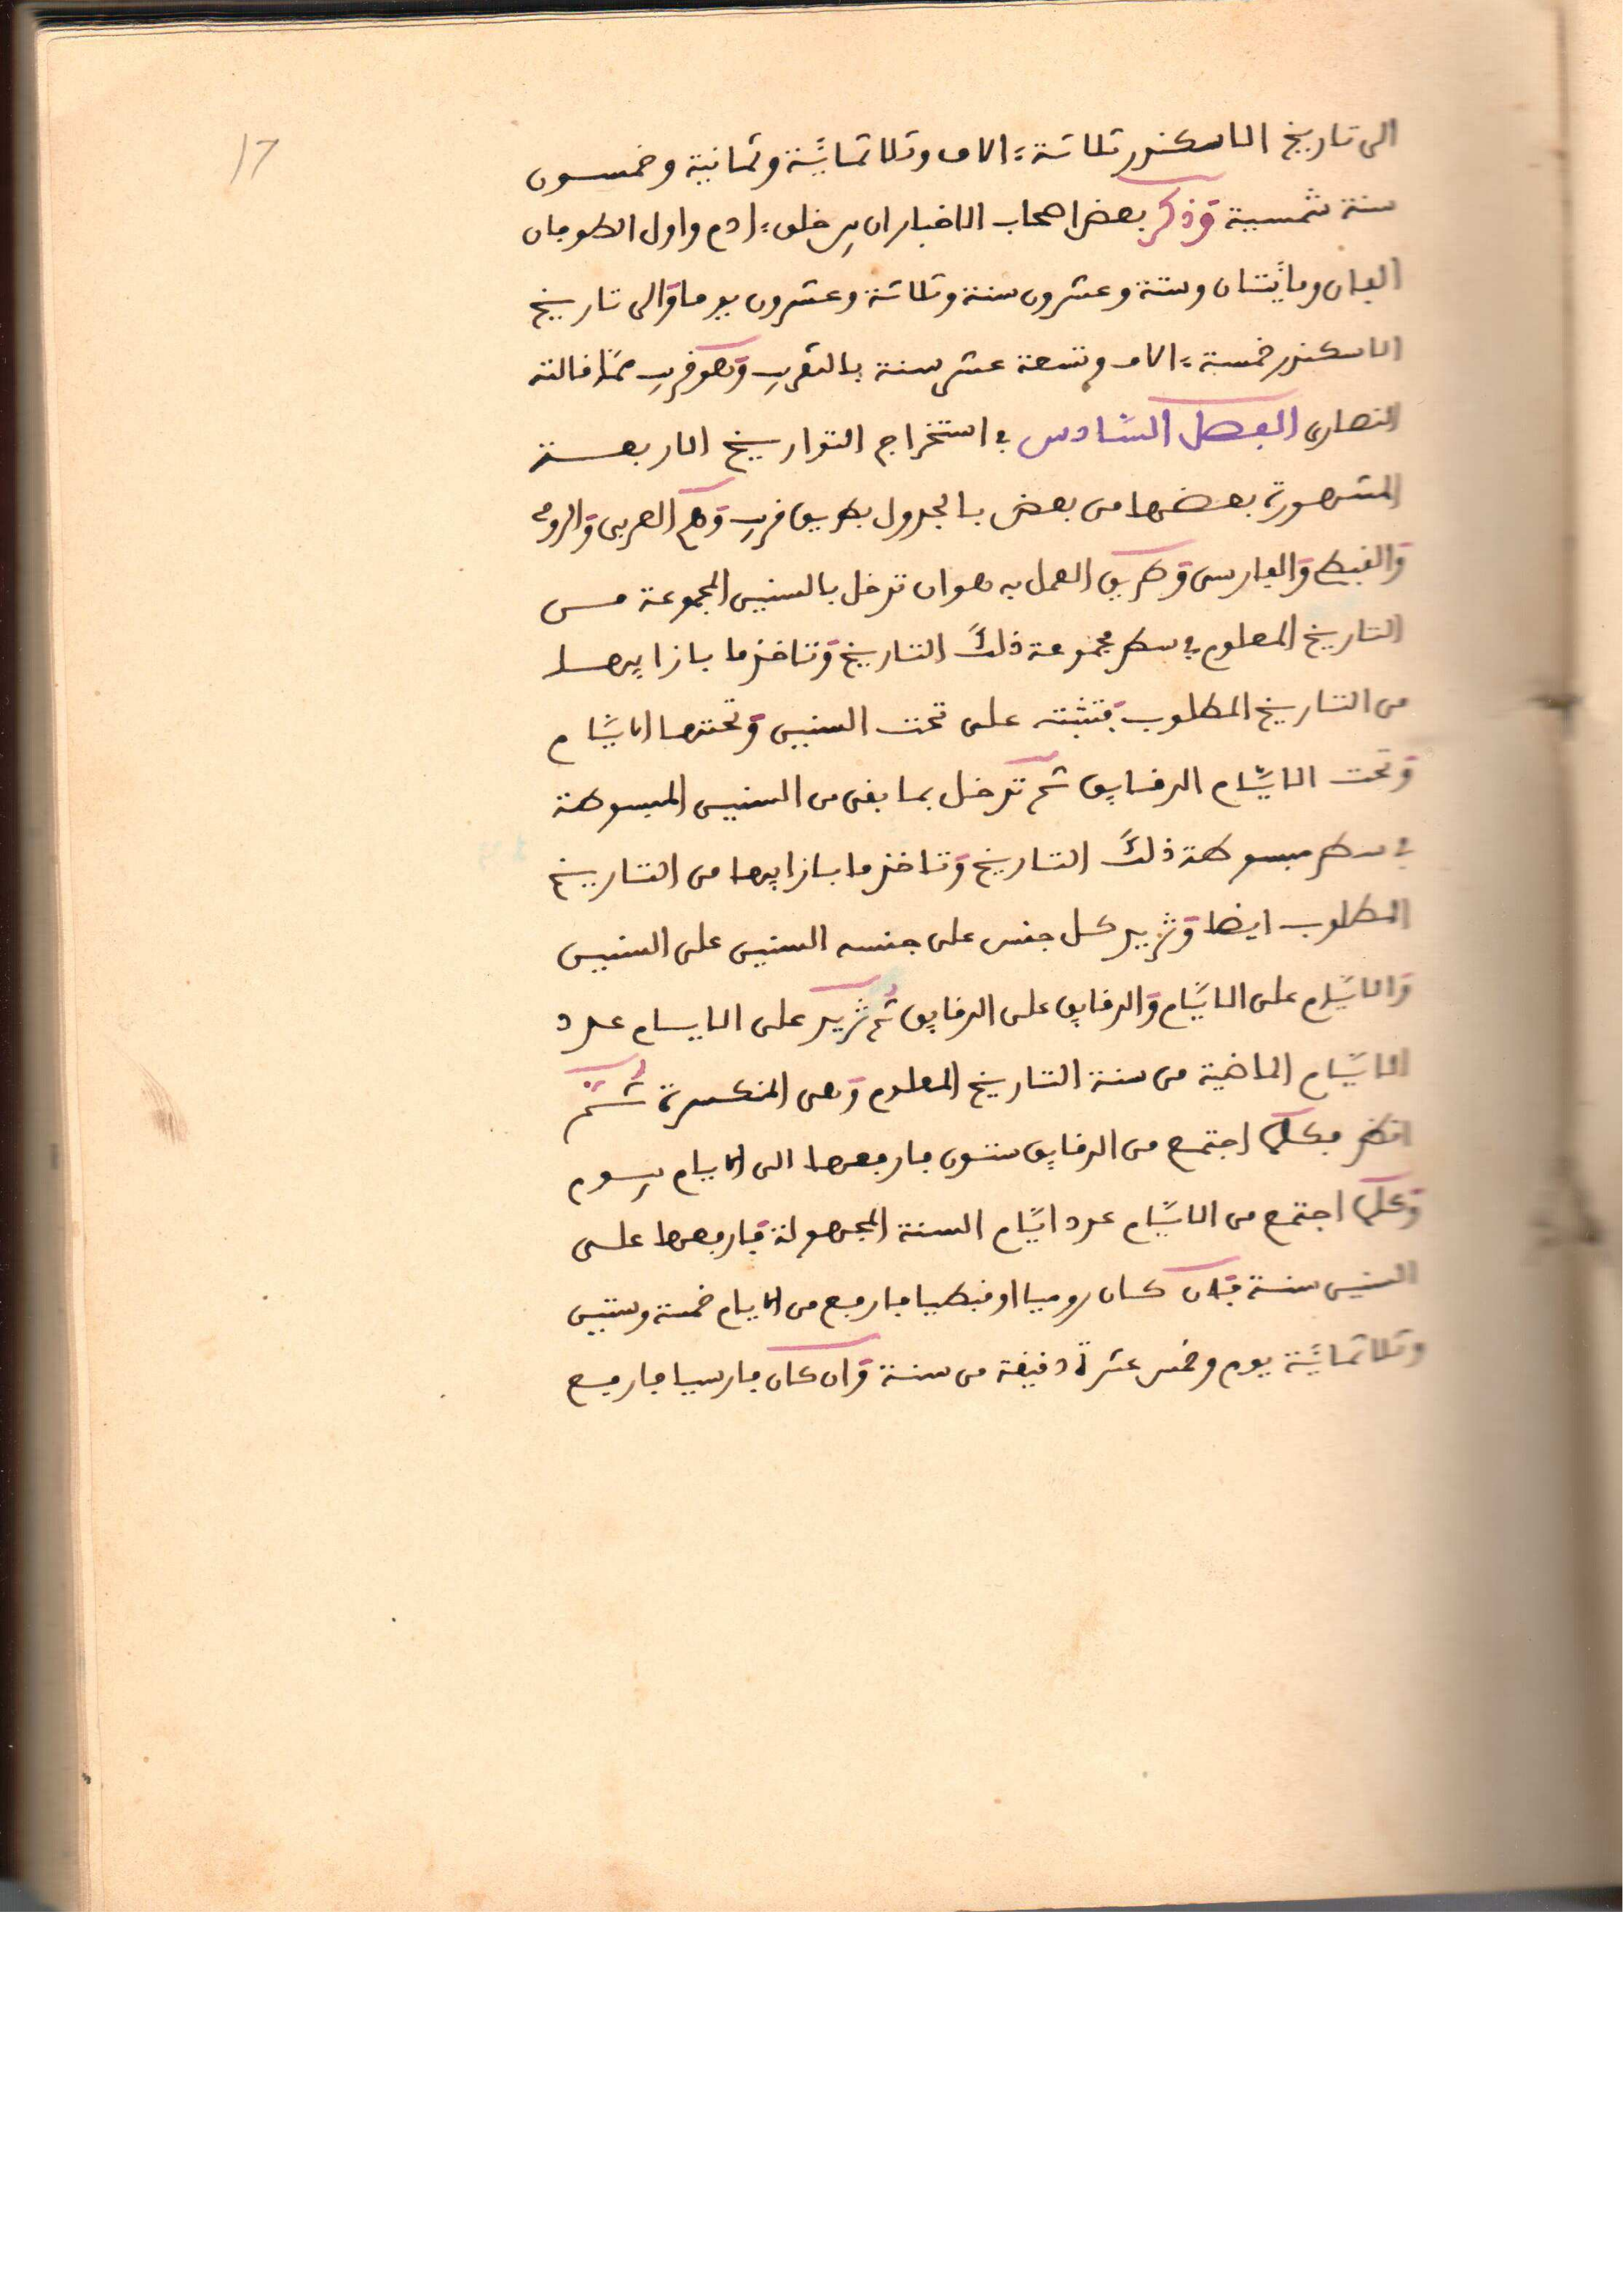 17
الى تاريخ الاسكندر ثلاثة ءالاف وثلاثمائة وثمانية وخمسون
سنة شمسية وذكر بعض اصحاب الاخبار ان بين خلق ءادم واول الطوفان
الفان ومايتان وستة وعشرون سنة وثلاثة وعشرون يوما والى تاريخ
الاسكندر خمسة ءالاف وتسعة عشر سنة بالتقريب وهو قريب مما قالته
النصارى الفصل السادس في استخراج التواريخ الاربعة
المشهورة بعضها من بعض بالجدول بطريق قريب وهي العربي والرومي
والقبطي والفارسي وطريق العمل به هو ان تدخل بالسنين المجموعة من
التاريخ المعلوم في سطر مجموعة ذلك التاريخ وتاخذ ما بازايها
من التاريخ المطلوب فتثبته على تخت السنين وتحتها الايام
وتحت الايام الدقايق ثم تدخل بما بقى من السنين المبسوطة
في سطر مبسوطة ذلك التاريخ وتاخذ ما بازايها من التاريخ
المطلوب ايضا وتزيد كل جنس على جنسه السنين على السنين
والايام على الايام والدقايق على الدقايق ثم تزيد على الايام عدد
الايام الماضية من سنة التاريخ المعلوم وهي المنكسرة ثم
انظر فكلما اجتمع من الدقايق ستون فارفعها الى الايام بيوم
وكلما اجتمع من الايام عدد ايام السنة المجهولة فارفعها على
السنين سنة فان كان روميا او قبطيا فارفع من الايام خمسة وستين
وثلاثمائة يوم وخمس عشرة دقيقة من سنة وان كان فارسيا فارفع